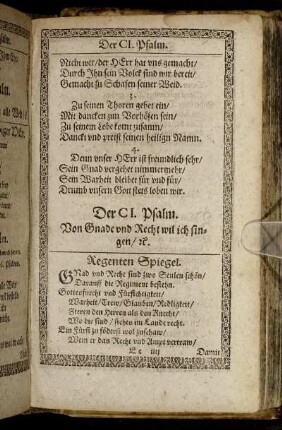 Der CI. Psalm.
Nicht wir/ der HErr hat vns gemacht/
Durch Ihn sein Volck sind wir bereit/
Gemacht zu Schafen seiner Weid.
3.
Zu seinen Thoren gehet ein/
Mit dancken zun Vorhöfen sein/
Zu seinem Lobe komt zusamn/
Danckt vnd preist seinen heilign Namn.
4.
Denn vnser HErr ist freundlich sehr/
Sein Gnad vergehet nimmermehr/
Sein Warheit bleibet für vnd für/
Drumb vnsern Gott stets loben wir.
Der CI. Psalm.
Von Gnade vnd Recht wil ich sin-
gen/ ꝛc.
Regenten Spiegel.
GNad vnd Recht sind zwo Seulen schön/
Darauff die Regiment bestehn.
Gottesfurcht vnd Fürsichtigkeit/
Warheit/ Trew/ Glauben/ Redligkeit/
Zieren den Herren als den Knecht/
Wo die sind/ stehts im Lande recht.
Ein Fürst zu föderst wol zuschaw/
Wem er das Recht vnd Ampt vertraw/
iiij
Damit